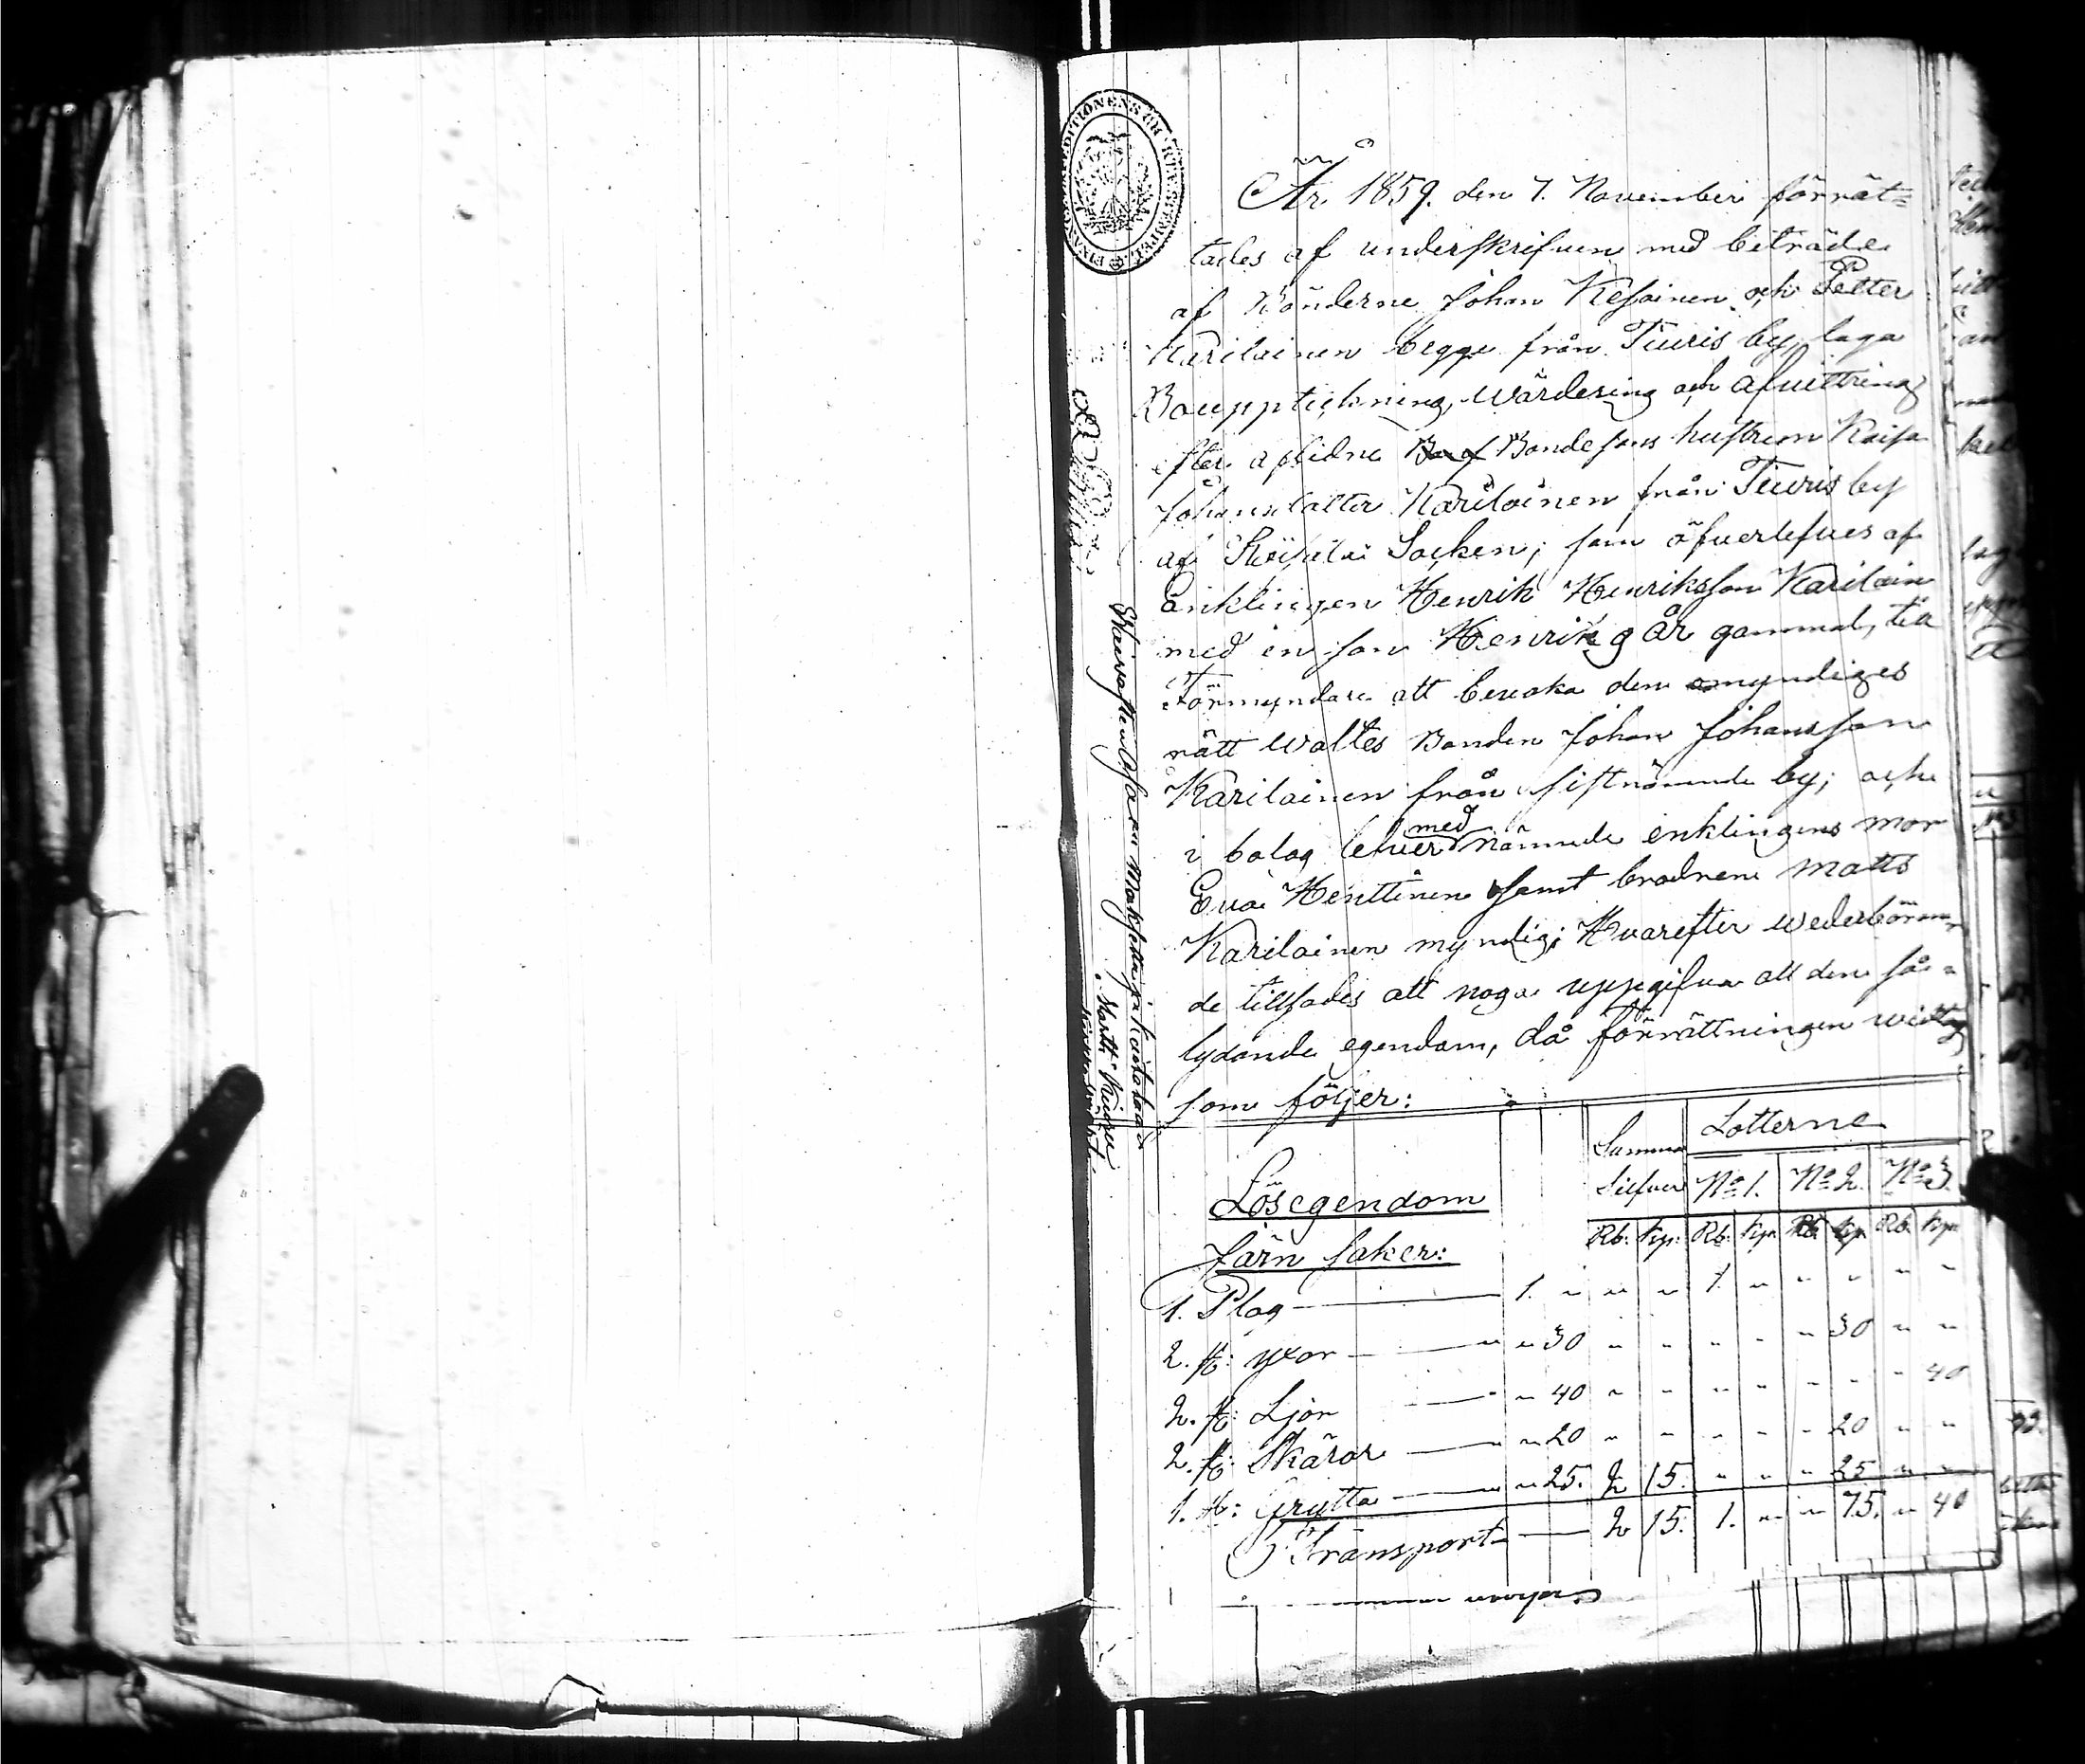 År 1859. den 7. November förrät=
tades af underskrifven med biträde
af Bönderne Johan Kesainen och Petter
Karilainen begge från Tiuris by, laga
Boupptekning, wärdering och afvittring
efter aflidne Bondesons hustrun Kaisa
Johansdotter Karilainen från Tiuris by
af Socken; som öfverlefves af
Enklingen Henrik Henriksson Karilain
med en son Henrik 9 år gammal, till
Förmyndare att bevaka den omyndiges
rätt waltes Bonden Johan Johansson
Karilainen från sistnämnde by; och
i bolag lefver med nämnde enklingens mor
Eva Henttinen samt brodren Matts
Karilainen myndig; Hvarefter wederböran
de tillsades att noga uppgifva all den få=
lydande egendom, då förrättningen widtog
som följer:
Lösegendom Summa Silfver Lotterne
No 1. No 2. No 3.
Järn saker: Rb: Kp: Rb: Kp: Rb: Kp: Rb: Kp:
1. Plog — 1. " " " 1. " " " " "
2. st: yxor — " 30 " " " " " 30 " "
2. st: Ljor — " 40 " " " " " " " 40
2. st: Skäror — " 20 " " " " " 20 " "
1. st: Grytta — " 25. 2 15. " " " 25 " "
Transport — 2 15. 1. " " 75. " 40